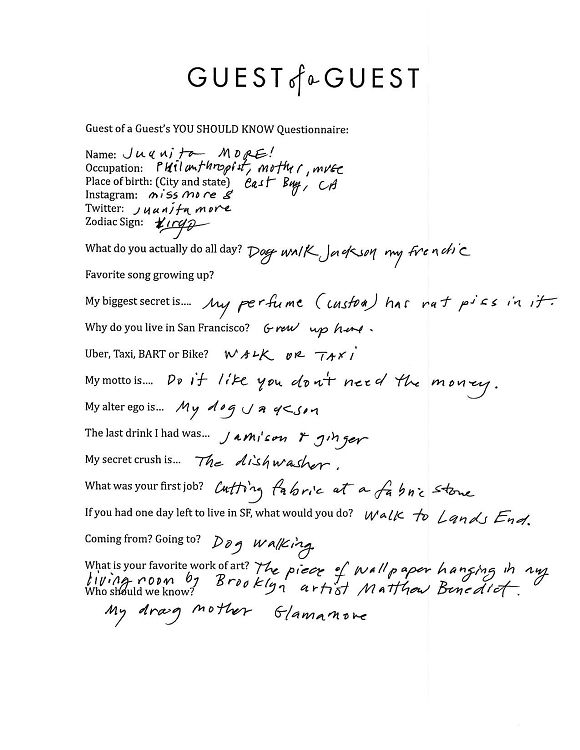 GUEST of a GUEST
Guest of a Guest's YOU SHOULD KNOW Questionnaire:
Name: Juanita MORE!
Occupation: Philanthropist, mother, muse
Place of birth: (City and state) East Bay, CA
Instagram: missmore 8
Twitter: juanitamore
Zodiac Sign: Virgo
What do you actually do all day? Dog walk Jackson my frenchie
Favorite song growing up?
My biggest secret is.... My perfume (custom) has rat piss in it.
Why do you live in San Francisco? Grew up here.
Uber, Taxi, BART or Bike? WALK OR TAXI
My motto is.... Do it like you don't need the money.
My alter ego is... My dog Jackson
The last drink I had was... Jamison & ginger
My secret crush is... The dishwasher.
What was your first job? Cutting fabric at a fabric store
If you had one day left to live in SF, what would you do? Walk to Lands End.
Coming from? Going to? Dog walking
What is your favorite work of art? The piece of wallpaper hanging in my
living room by Brooklyn artist Matthew Benedict.
Who should we know?
My drag mother Glamamore